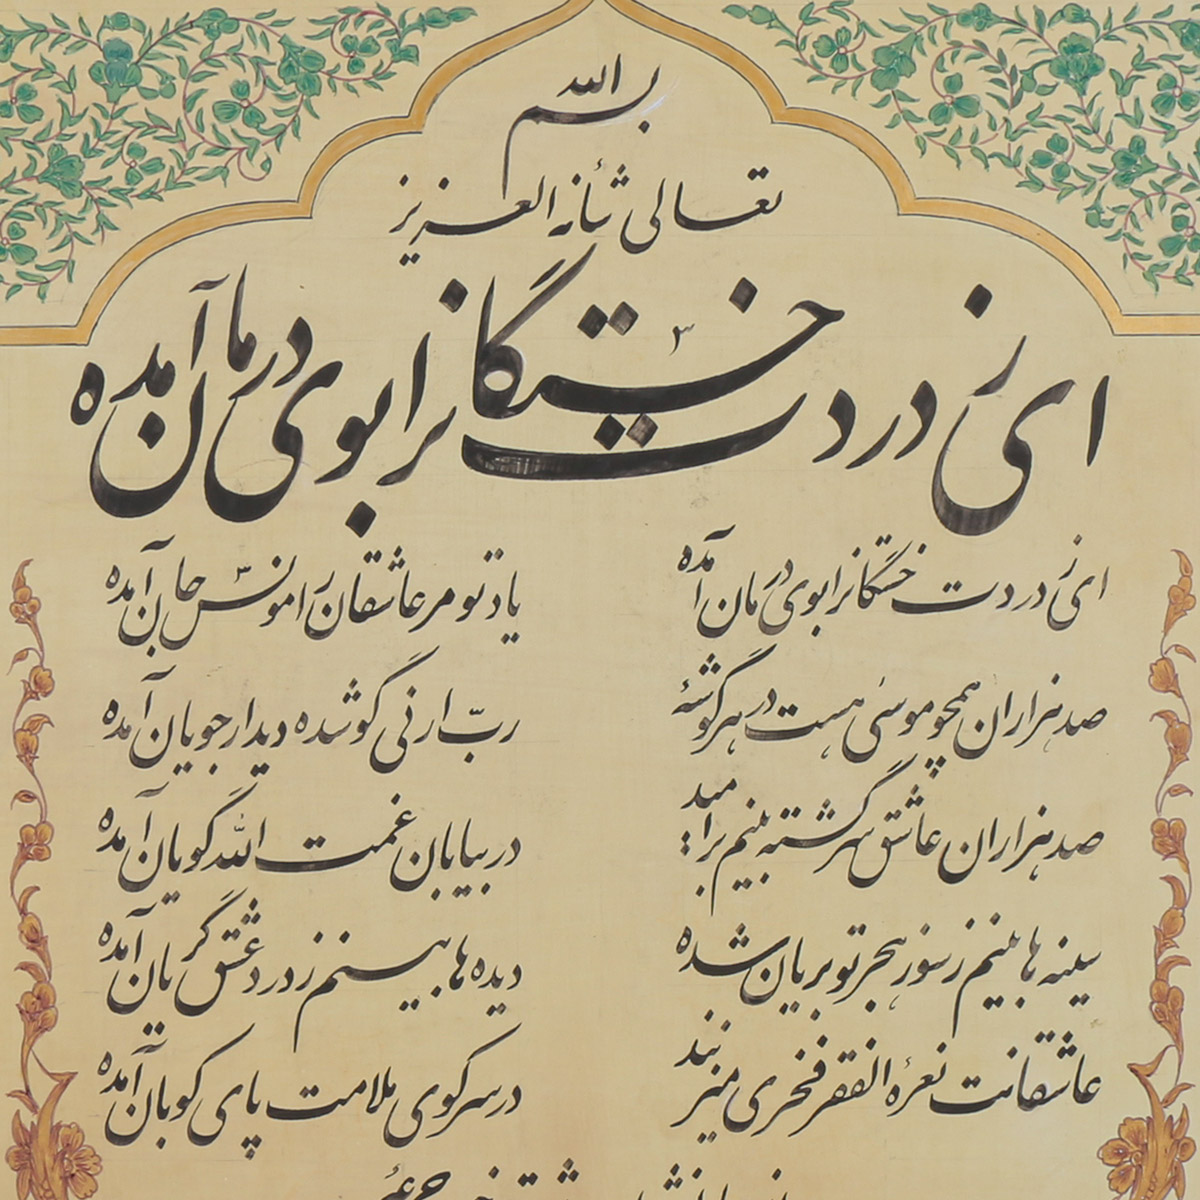 بسم الله
تعالی شأنه العزیز
ای ز دردت خستگانرا بوی درمان آمده
ای ز دردت خستگانرا بوی درمان آمده
یاد تو مر عاشقان را مونس جان آمده
صد هزاران همچو موسی هست در هر گوشهٔ
ربّ ارنی گو شده دیدار جویان آمده
صد هزاران عاشق سرگشته بینم بر امید
در بیابان غمت الله گویان آمده
سینه ها بینم ز سوز هجر تو بریان شده
دیده ها بینم ز درد عشق گریان آمده
عاشقانت نعرهٔ الفقر فخری میزنند
در سر کوی ملامت پای کوبان آمده